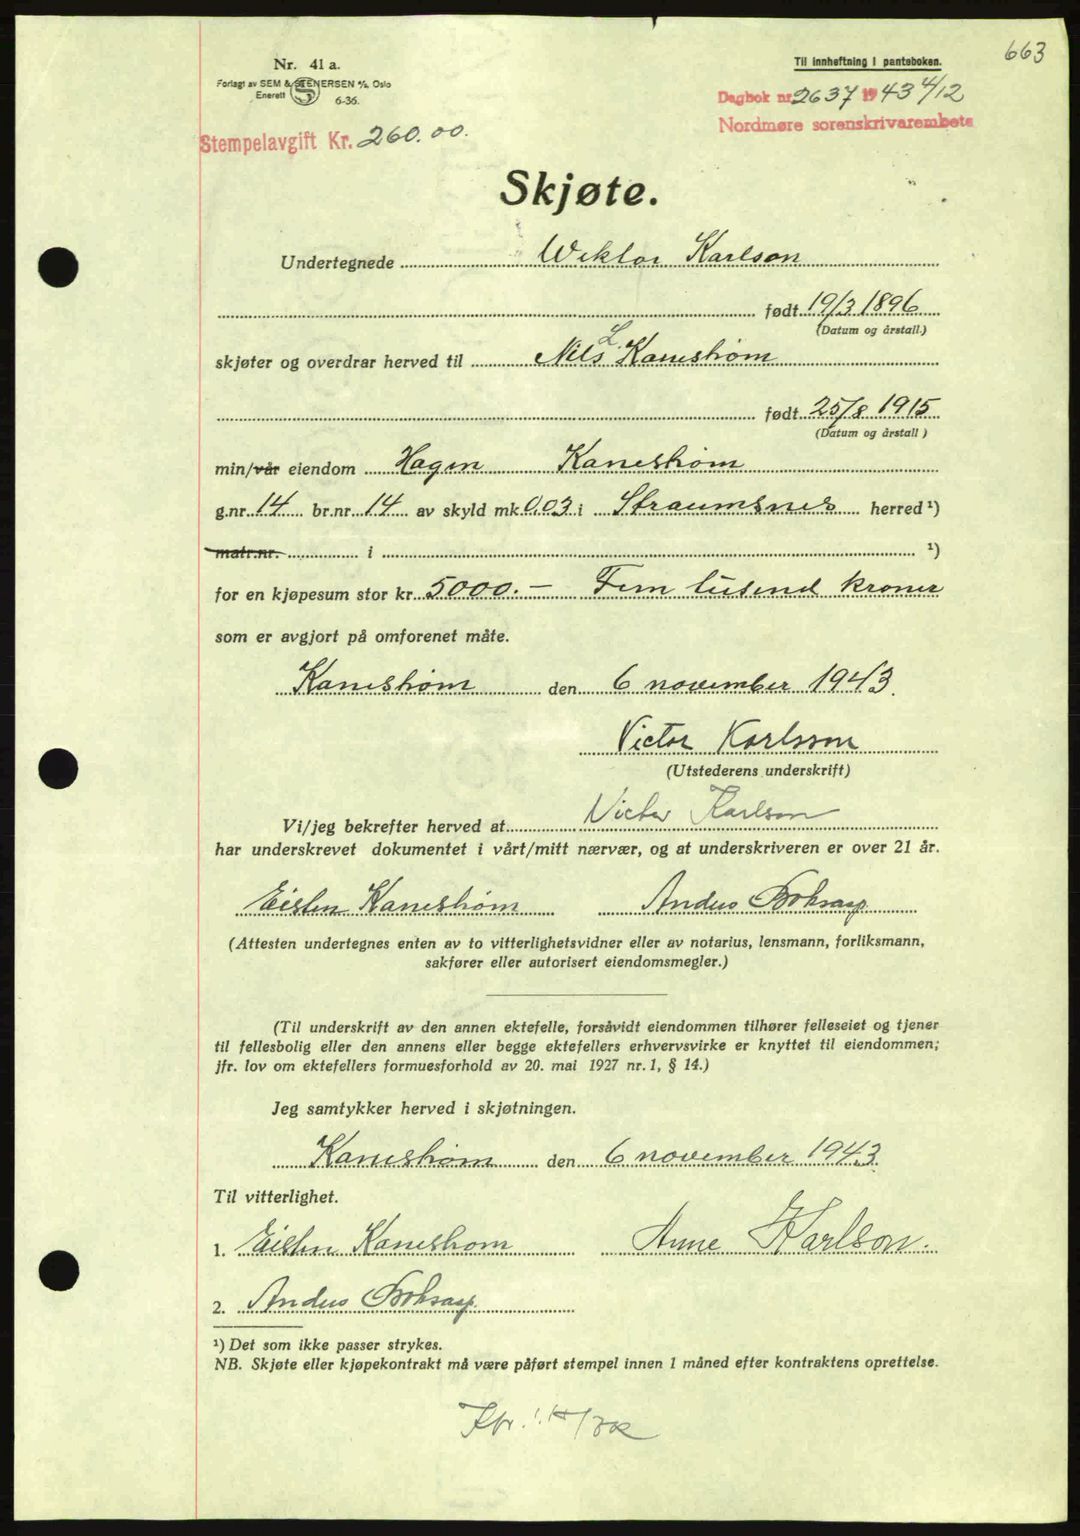 663
Nr. 41 a.
Forlagt av SEM & STENERSEN A/S, Oslo
Enerett 6-36.
Til innheftning i panteboken.
Dagbok nr. 2637 1943 4/12
Nordmøre sorenskrivarembete
Stempelavgift Kr. 260.00.
Skjøte.
Undertegnede Wiktor Karlson
født 19/3 1896
(Datum og årstall.)
skjøter og overdrar herved til Nils L. Kanestrøm
født 25/8 1915
(Datum og årstall)
min/vår eiendom Hagen Kanestrøm
g.nr. 14 br.nr. 14 av skyld mk. 0.03 i Straumsnes herred ¹)
matr.nr. i ¹)
for en kjøpesum stor kr. 5000.- Fem tusend kroner
som er avgjort på omforenet måte.
Kanestrøm den 6 november 1943.
Victor Karlsson
(Utstederens underskrift)
Vi/jeg bekrefter herved at Victor Karlson
har underskrevet dokumentet i vårt/mitt nærvær, og at underskriveren er over 21 år.
Kanestrøm Anders
(Attesten undertegnes enten av to vitterlighetsvidner eller av notarius, lensmann, forliksmann,
sakfører eller autorisert eiendomsmegler.)
(Til underskrift av den annen ektefelle, forsåvidt eiendommen tilhører felleseiet og tjener
til fellesbolig eller den annens eller begge ektefellers erhvervsvirke er knyttet til eiendommen;
jfr. lov om ektefellers formuesforhold av 20. mai 1927 nr. 1, § 14.)
Jeg samtykker herved i skjøtningen.
Kanestrøm den 6 november 1943.
Til vitterlighet.
1. Kanestrøm Anne Karlson.
2. Anders
¹) Det som ikke passer strykes.
NB. Skjøte eller kjøpekontrakt må være påført stempel innen 1 måned efter kontraktens oprettelse.